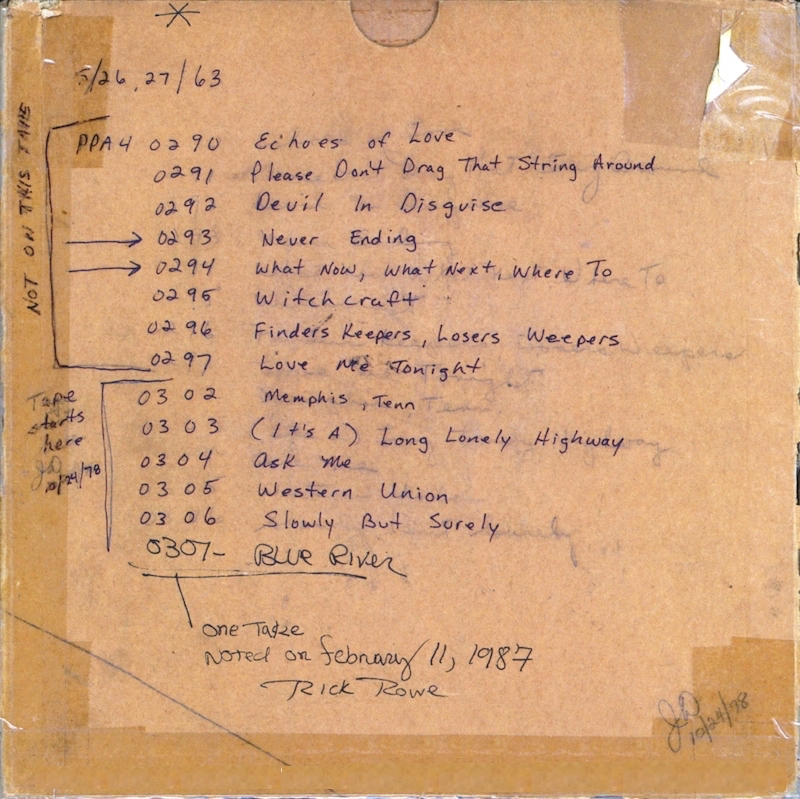 5/26, 27/63
NOT ON THIS TAPE
PPA4 0290 Echoes of Love
0291 Please Don't Drag That String Around
0292 Devil In Disguise
0293 Never Ending
0294 What Now, What Next, Where To
0295 Witchcraft
0296 Finders Keepers, Losers Weepers
0297 Love Me Tonight
Tape
starts
here
JD
10/24/78
0302 Memphis, Tenn
0303 (It's A) Long Lonely Highway
0304 Ask Me
0305 Western Union
0306 Slowly But Surely
0307- BLUE RIVER
one Take
Noted on february 11, 1987
Rick Rowe
JD
10/24/78